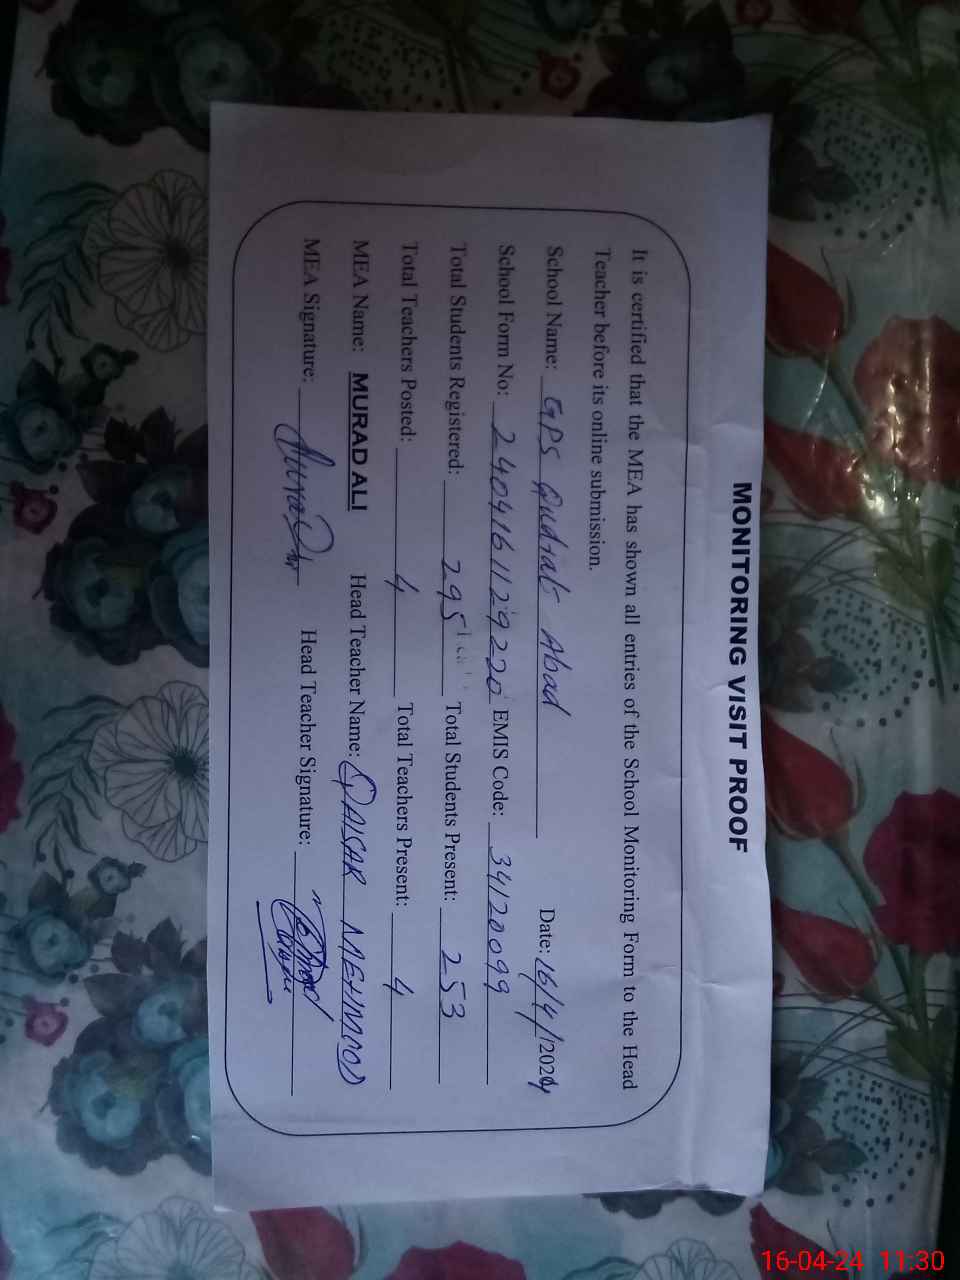 MONITORING VISIT PROOF
It is certified that the MEA has shown all entries of the School Monitoring Form to the Head
Teacher before its online submission.
School Name: GPS Qudrat Abad Date: 16/4/2024
School Form No: 2404161129220 EMIS Code: 34120099
Total Students Registered: 295 Total Students Present: 253
Total Teachers Posted: 4 Total Teachers Present: 4
MEA Name: MURAD ALI Head Teacher Name: QAISAR MEHMOOD
MEA Signature: Head Teacher Signature:
16-04-24 11:30